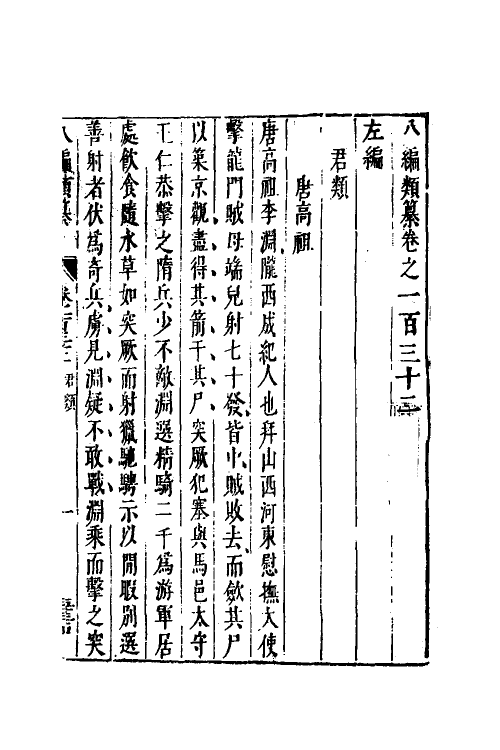 八編類纂卷之一百三十二
左編
君類
唐高祖
唐高祖李淵隴西成紀人也拜山西河東慰撫大使
擊龍門賊母端兒射七十發皆中賊敗去而歛其尸
以築京觀盡得其箭于其尸突厥犯塞與馬邑太守
王仁恭擊之隋兵少不敵淵選精騎二千爲游軍居
處飲食隨水草如突厥而射獵馳騁示以閒暇別選
善射者伏爲奇兵虜見淵疑不敢戰淵乘而擊之突
八編類纂
君類
一